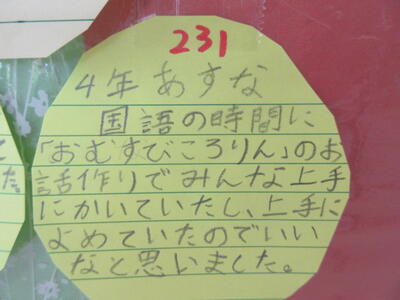 231
4年 あすな
国語の時間に
「おむすびころりん」のお
話作りでみんな上手
にかいていたし、上手に
よめていたのでいい
なと思いました。